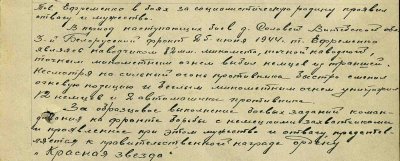 Тов. Ефременко в боях за социалистическую родину проявил
отвагу и мужество.
В период наступающих боев д. Соловьи Витебской обл.
3-й Белорусский фронт 25 июня 1944 г. Ефременко
являясь наводчиком 82 мм. миномета, точной наводкой,
точным минометным огнем выбил немцев из траншей.
Несмотря на сильный огонь противника быстро сменил
огневую позицию и беглым минометным огнем уничтожил
12 немцев и 2 автомашины противника.
За образцовое выполнение боевых заданий коман-
дования на фронте борьбы с немецкими захватчиками
и проявленное при этом мужество и отвагу представ-
ляется к правительственной награде ордену
"Красная звезда"